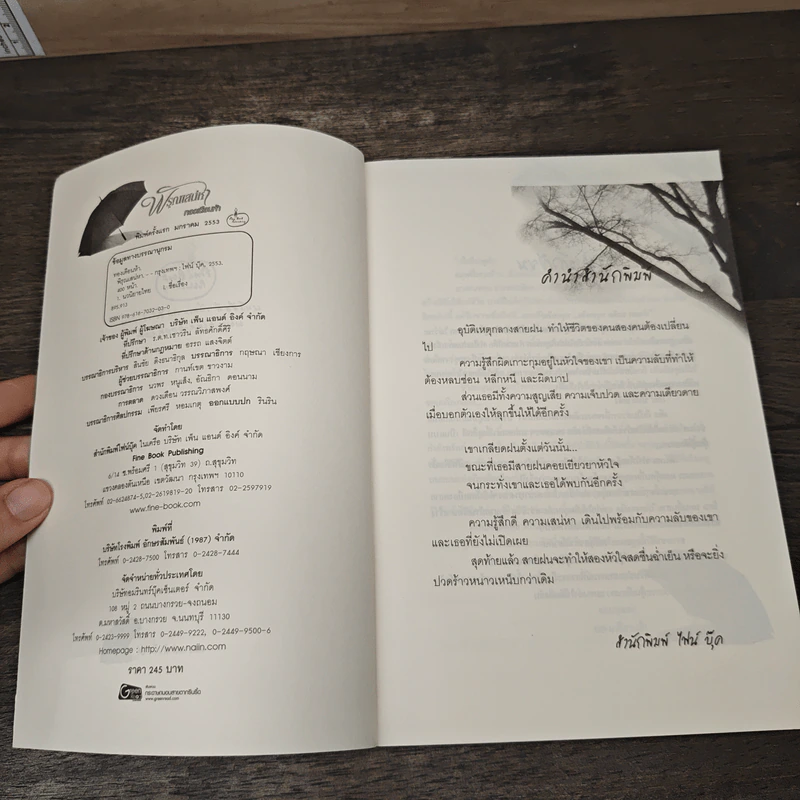 พิรุณเสน่หา
ทองเดือนห้า
พิมพ์ครั้งแรก มกราคม 2553
ข้อมูลทางบรรณานุกรม
ทองเดือนห้า.
พิรุณเสน่หา. - - กรุงเทพฯ : ไฟน์ บุ๊ค, 2553.
400 หน้า
1. นวนิยายไทย I. ชื่อเรื่อง
ISBN 978-616-7032-03-0
เจ้าของ ผู้พิมพ์ ผู้โฆษณา บริษัท เพ็น แอนด์ อิงค์ จำกัด
ที่ปรึกษา ร.ต.ท.เชาวริน ลัทธศักดิ์ศิริ
ที่ปรึกษาด้านกฎหมาย อรรถ แสงจิตต์
บรรณาธิการบริหาร สินชัย ดิ่งธนาธิกุล บรรณาธิการ กฤษณา เชียงการ
ผู้ช่วยบรรณาธิการ กานท์เขต ชาวงาม
กองบรรณาธิการ นวพร หนูเส็ง, อัณธิกา ดอนนาม
การตลาด ดวงเดือน วรรณวิภาสพงศ์
บรรณาธิการศิลปกรรม เพียรศรี หอมเกตุ ออกแบบปก รินริน
จัดทำโดย
สำนักพิมพ์ไฟน์บุ๊ค ในเครือ บริษัท เพ็น แอนด์ อิงค์ จำกัด
Fine Book Publishing
6/14 ซ.พร้อมศรี 1 (สุขุมวิท 39) ถ.สุขุมวิท
แขวงคลองตันเหนือ เขตวัฒนา กรุงเทพฯ 10110
โทรศัพท์ 02-6624874-5,02-2619819-20 โทรสาร 02-2597919
www.fine-book.com
พิมพ์ที่
บริษัทโรงพิมพ์ อักษรสัมพันธ์ (1987) จำกัด
โทรศัพท์ 0-2428-7500 โทรสาร 0-2428-7444
จัดจำหน่ายทั่วประเทศโดย
บริษัทอมรินทร์บุ๊คเซ็นเตอร์ จำกัด
108 หมู่ 2 ถนนบางกรวย-จงถนอม
ต.มหาสวัสดิ์ อ.บางกรวย จ.นนทบุรี 11130
โทรศัพท์ 0-2423-9999 โทรสาร 0-2449-9222, 0-2449-9500-6
Homepage : http://www.naiin.com
ราคา 245 บาท
Green
กระดาษถนอมสายตากรีนรี้ด
www.greenread.com
คำนำสำนักพิมพ์
อุบัติเหตุกลางสายฝน ทำให้ชีวิตของคนสองคนต้องเปลี่ยน
ไป
ความรู้สึกผิดเกาะกุมอยู่ในหัวใจของเขา เป็นความลับที่ทำให้
ต้องหลบซ่อน หลีกหนี และผิดบาป
ส่วนเธอมีทั้งความสูญเสีย ความเจ็บปวด และความเดียวดาย
เมื่อบอกตัวเองให้ลุกขึ้นให้ได้อีกครั้ง
เขาเกลียดฝนตั้งแต่วันนั้น...
ขณะที่เธอมีสายฝนคอยเยียวยาหัวใจ
จนกระทั่งเขาและเธอได้พบกันอีกครั้ง
ความรู้สึกดี ความเสน่หา เดินไปพร้อมกับความลับของเขา
และเธอที่ยังไม่เปิดเผย
สุดท้ายแล้ว สายฝนจะทำให้สองหัวใจสดชื่นฉ่ำเย็น หรือจะยิ่ง
ปวดร้าวหนาวเหน็บกว่าเดิม
สำนักพิมพ์ ไฟน์ บุ๊ค